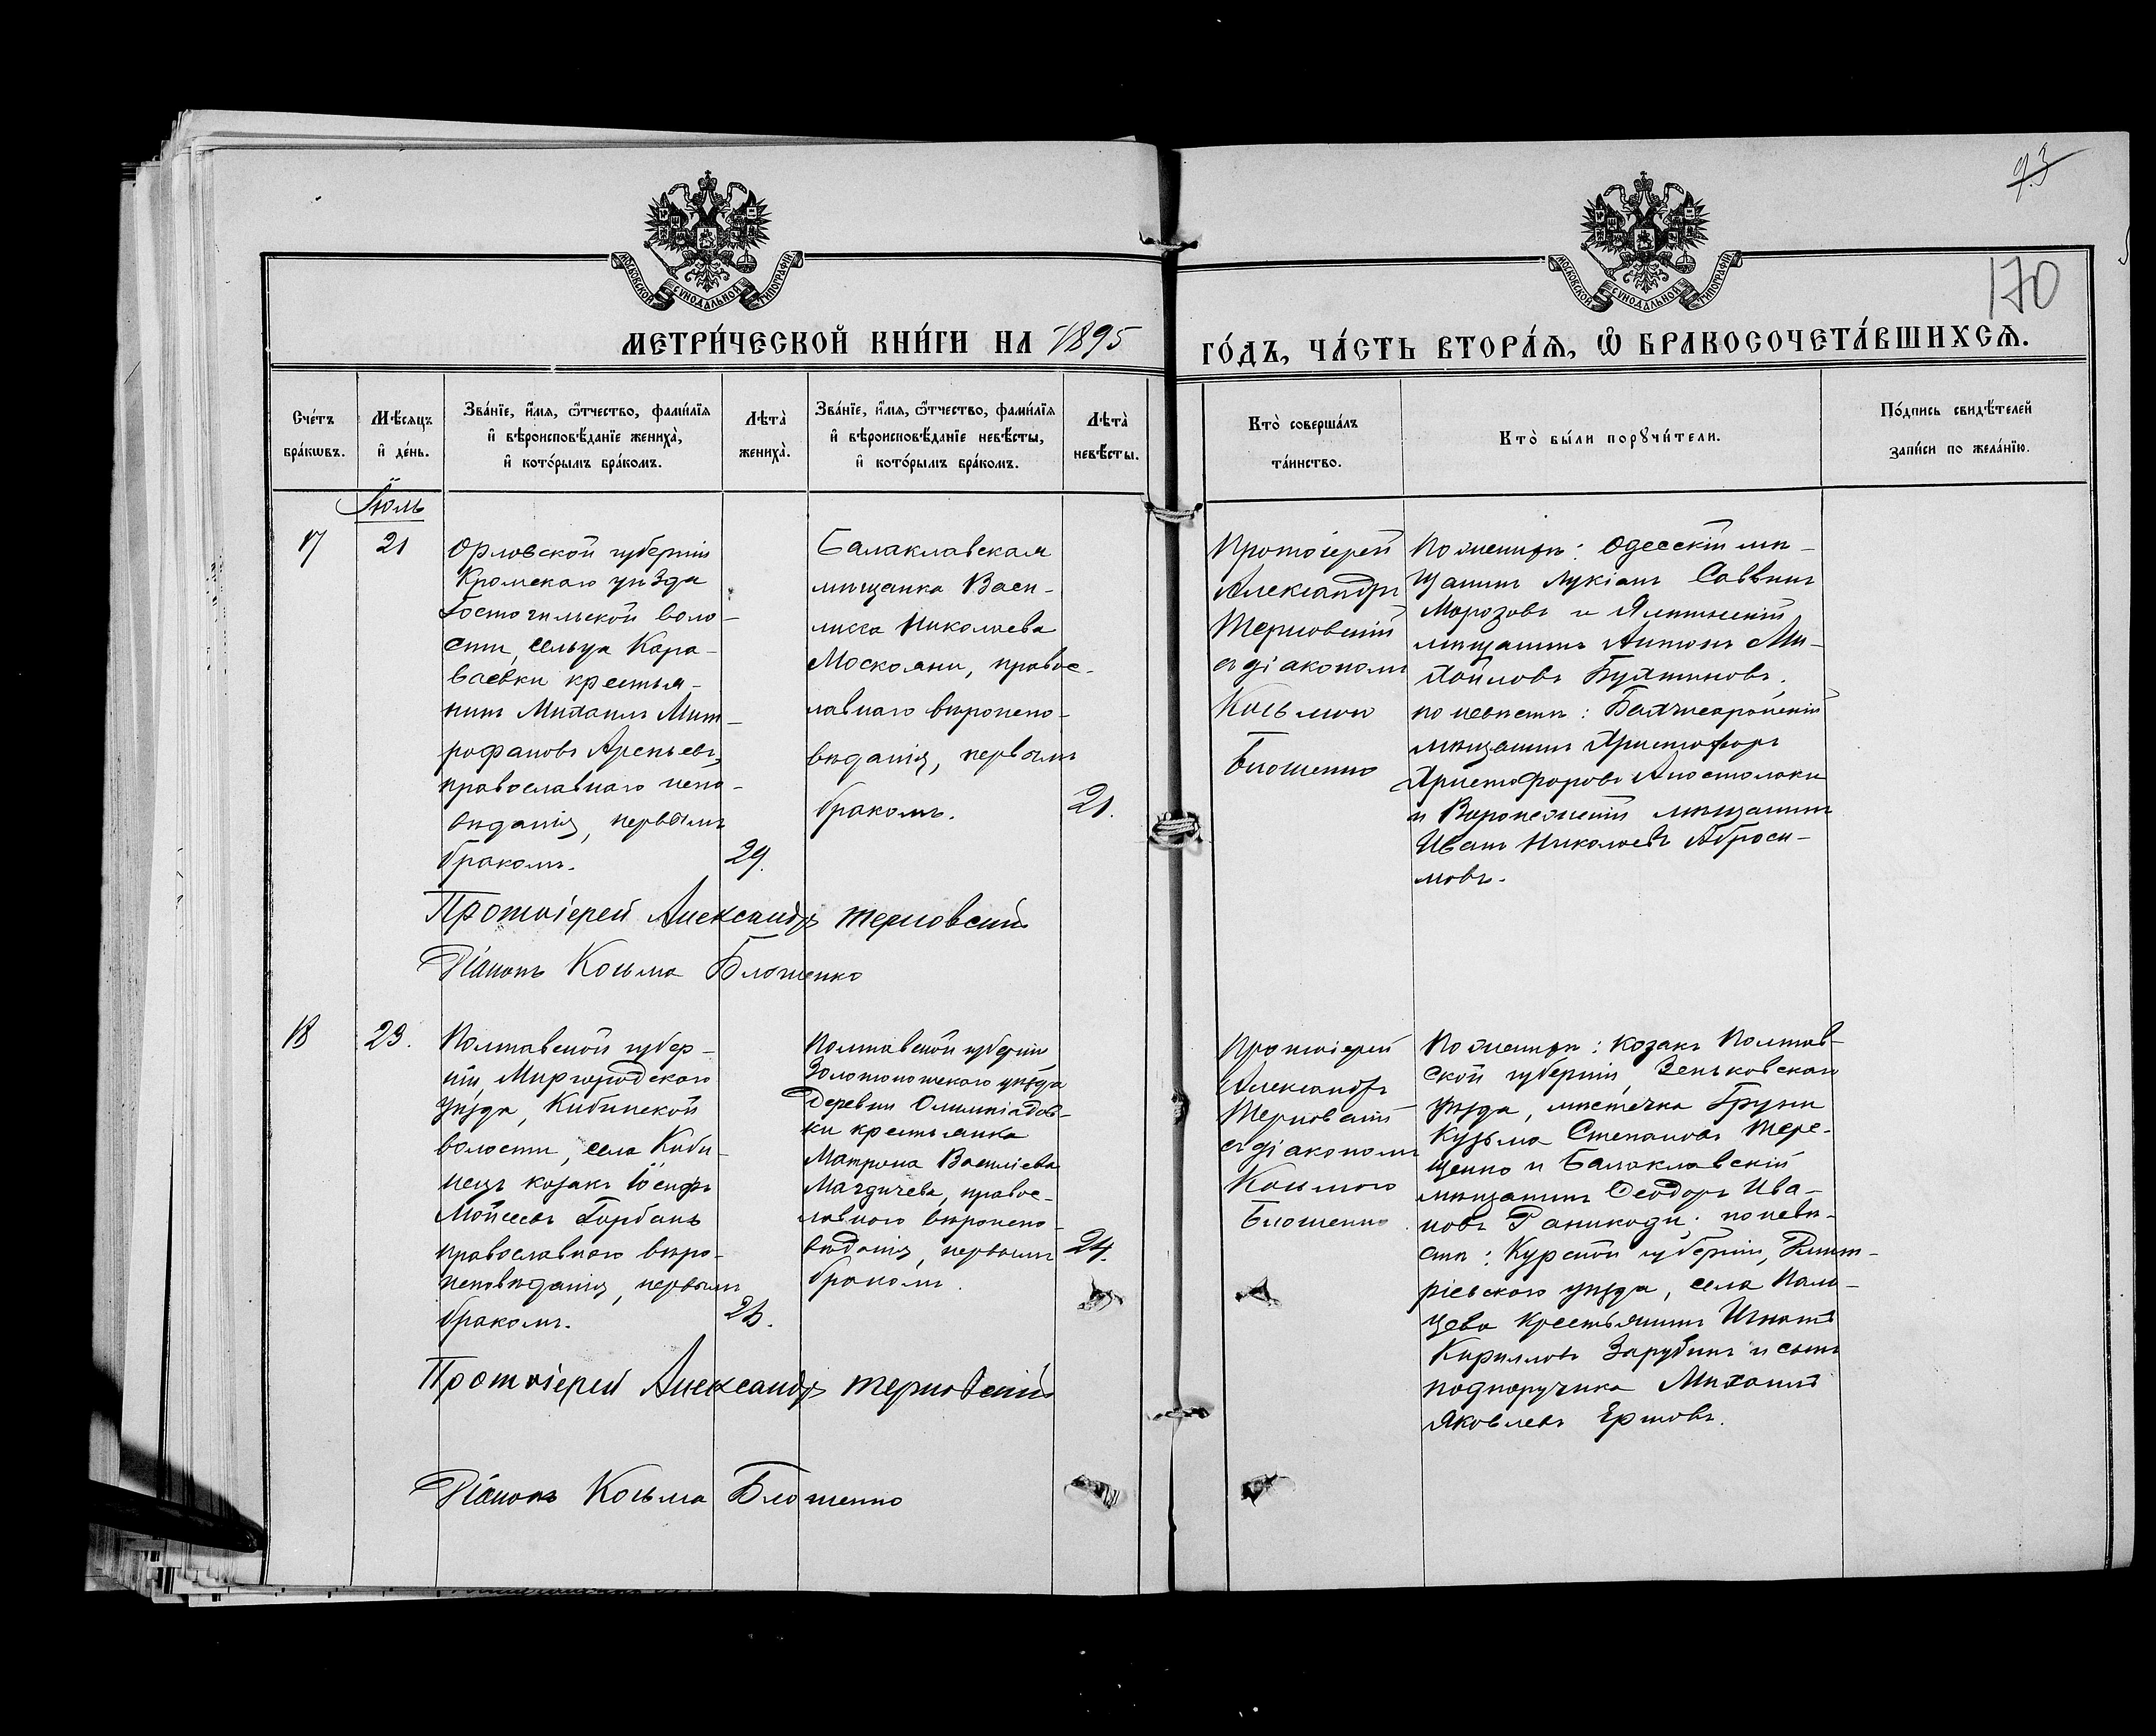 93
170
МОСКОВСКОЙ СѴНОДАЛЬНОЙ ТИПОГРАФІИ
МОСКОВСКОЙ СѴНОДАЛЬНОЙ ТИПОГРАФІИ
МЕТРИ́ЧЕСКОЙ КНИ́ГИ НА 1895
ГО́ДЪ, ЧА́СТЬ ВТОРА́Ѧ, Ѡ҆ БРАКОСОЧЕТА́ВШИХСѦ.
Сче́тъ
бра́кѡвъ.
Мѣ́сяцъ
и҆ де́нь.
Зва́нїе, и҆́мя, ѻ҆́тчество, фами́лїя
и҆ вѣроисповѣ́данїе жениха̀,
и҆ кото́рымъ бра́комъ.
Лѣта̀
жениха̀.
Зва́нїе, и҆́мя, ѻ҆́тчество, фами́лїя
и҆ вѣроисповѣ́данїе невѣ́сты,
и҆ кото́рымъ бра́комъ.
Лѣта̀
невѣ́сты.
Кто̀ соверша́лъ
та́инство.
Кто̀ бы́ли порꙋчи́тели.
По́дпись свидѣ́телей
запи́си по жела́нїю.
Іюль
17
21
Орловской губерніи
Кромскаго уѣзда
волο-
сти, сельца Кара-
ваевки крестья-
нинъ Михаилъ Мит-
рофановъ
православнаго испо-
вѣданія, первымъ
бракомъ.
29.
Балаклавская
мѣщанка Васи-
лисса Николаева
Москоани, правос-
лавнаго вѣроиспо-
вѣданія, первымъ
бракомъ.
21.
Протоіерей
Александръ
Терновскій
съ діакономъ
Косьмою
Блошенко
По женихѣ: Одесскій мѣ-
щанинъ Лукіанъ Саввинъ
Морозовъ и Ялтинскій
мѣщанинъ Антонъ Ми-
хайловъ Бухтиновъ,
по невѣстѣ: Бахчисарайскій
мѣщанинъ Христофоръ
Христофоровъ Апостолаки
и Воронежскій мѣщанинъ
Иванъ Николаевъ Аброси-
мовъ.
Протоіерей Александръ Терновскій
Діаконъ Косьма Блошенко
18
23.
Полтавской губер-
ніи, Миргородскаго
уѣзда, Кибинской
волости, села Киби-
нецъ козакъ Іосифъ
Мойсеевъ Горбань
православнаго вѣро-
исповѣданія, первымъ
бракомъ.
Полтавской губерніи
Золотоношскаго уѣзда
Деревни Олимпіадов-
ки крестьянка
Матрона Василіева
Магдичева, правос-
лавнаго вѣроиспо-
вѣданія, первымъ
бракомъ
24.
Протоіерей
Александръ
Терновскій
съ діакономъ
Косьмою
Блошенко
По женихѣ: козакъ Полтав-
ской губерніи, Зеньковскаго
уѣзда, мѣстечка Груни
Кузьма Степановъ Тере-
щенко и Балаклавскій
мѣщанинъ Ѳеодоръ Ива-
новъ Раникоди; по невѣ-
стѣ: Курской губерніи, Дмит-
ріевскаго уѣзда, села Пало-
цева крестьянинъ Игнатъ
Кирилловъ Зарубинъ и сынъ
подпоручика Михаилъ
Яковлевъ Ершовъ.
Протоіерей Александръ Терновскій
Діаконъ Косьма Блошенко